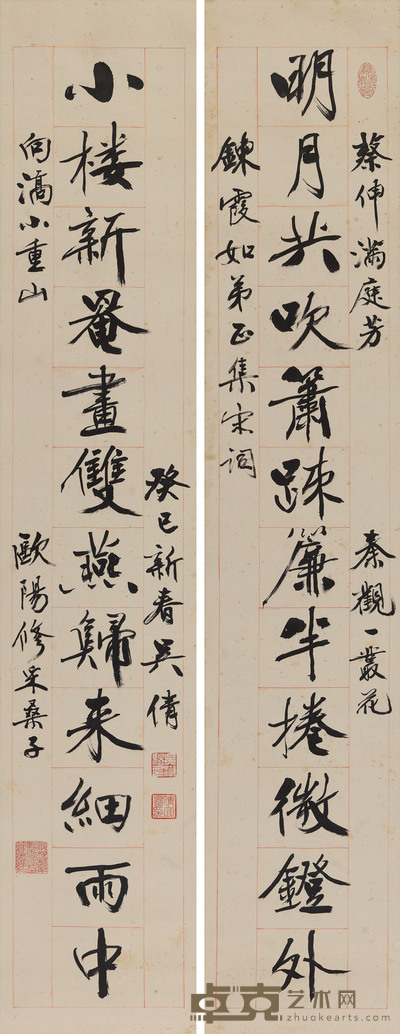 蔡伸滿庭芳
秦觀一叢花
明月共吹簫疎簾半捲微鐙外
鍊霞如弟正集宋词
癸巳新春吴倩
小楼新罨畫雙燕歸来細雨中
向滈小重山
歐陽修采桑子
卓克艺术网
zhuokearts.com